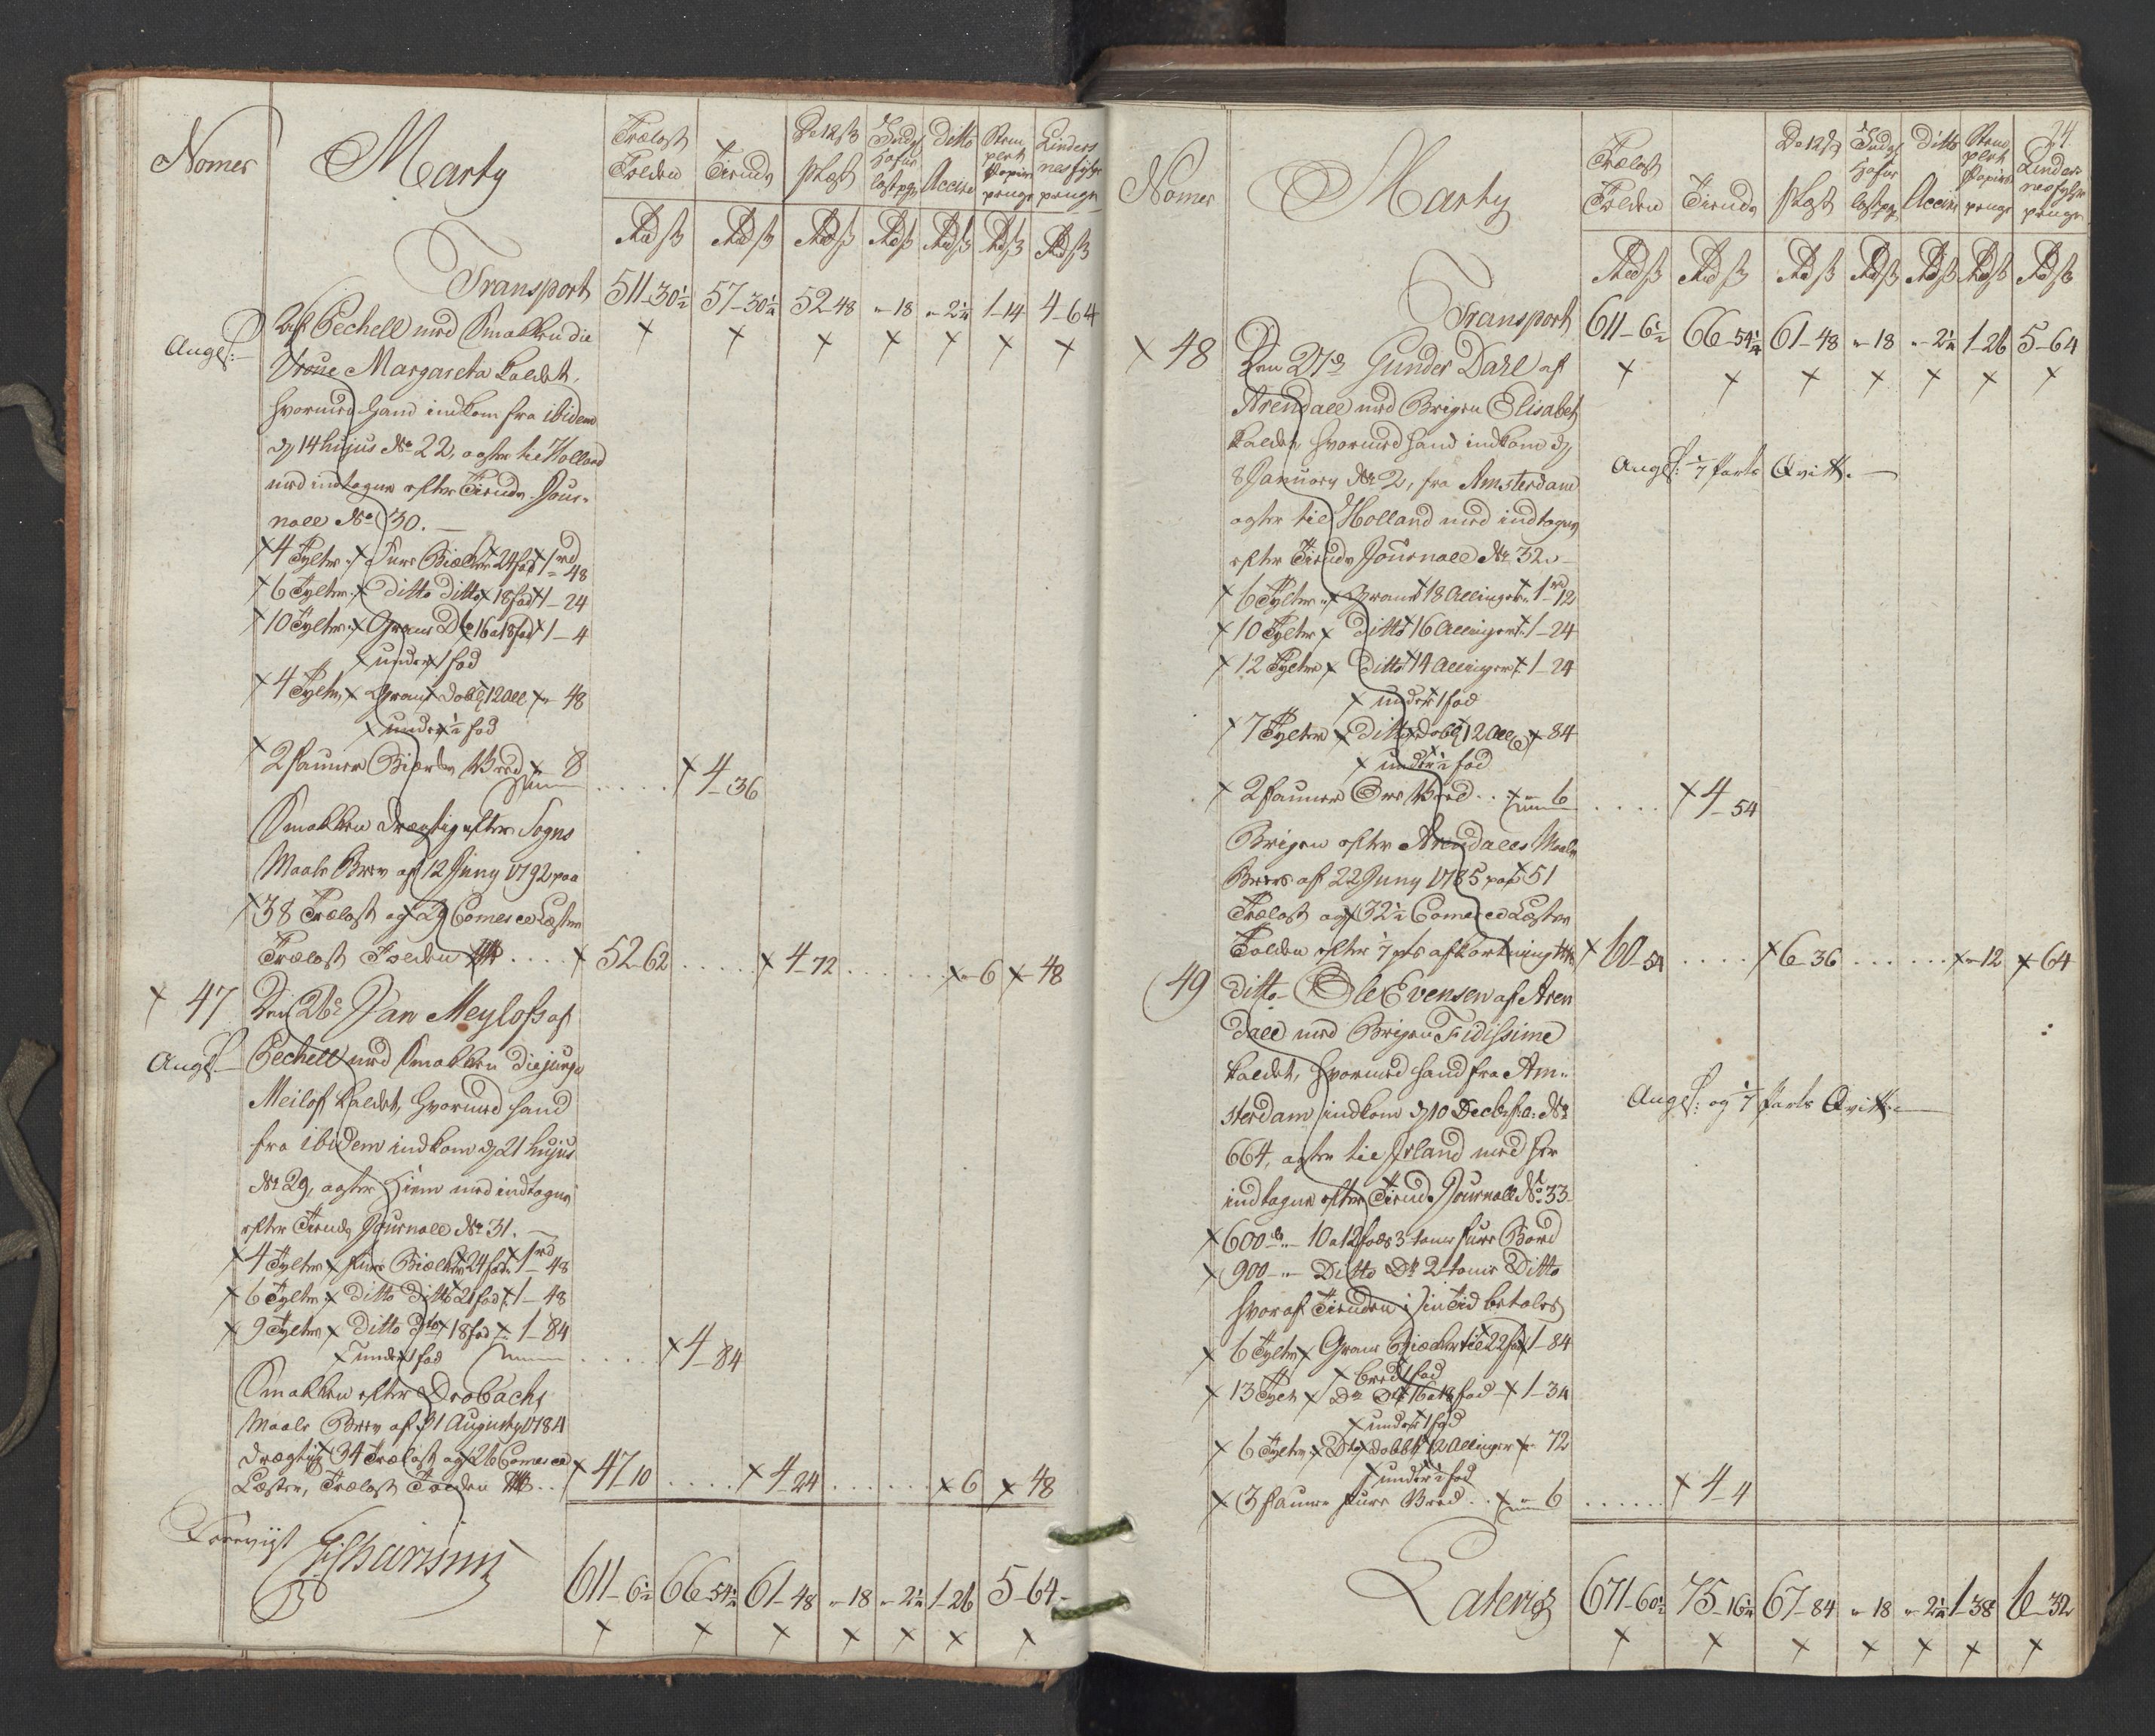 Nomer
Marty
Trælast Tolden
Tiende
De 12 ß pLæst
Indg: Hafne lastpge
Ditto Accise
Stemplert Papirs penge
Lindersnes fyhrpenge
Rd ß Rd ß Rd ß Rd ß Rd ß Rd ß Rd ß
Transport 511-30½ 57-30¼ 52-48 "-18 "-2¼ 1-14 4-64
Angl:
af Pechell med Smakken die
Vroue Margareta kaldet,
hvormed hand indkom fra ibidem
d 14 hujus No 22, agter til Holland
med indtagne efter Tiende Jour-
nall No 30.
4 Tylter Furre Bielker 24 fod 1 rd 48
6 Tylter ditto ditto 18 fod 1-24
10 Tylter Grane Do 16 a 18 fod 1-4
under 1 fod
4 Tylter Grane dobl 12 All "-48
under ½ fod
2 fauner Birke Veed "-8
4-36
Smakken drægtig efter Sogns
Maale Brev af 12 Juny 1792 paa
38 Trælast og 29 Comerce Læster
Trælast Tolden 52-62 4-72 "-6 "-48
47 Den 26de Jan Meylofs af
Angl:
Pechell med Smakken die junge
Meilof kaldet, hvormed hand
fra ibidem indkom d 21 hujus
No 29, agter hiem med indtagne
efter Tiende Journall No 31.
4 Tylter furre Bielker 24 fod 1 rd 48
6 Tylter ditto ditto 21 fod 1-48
9 Tylter ditto dto 18 fod 1-84
under 1 fod
4-84
Smakken efter Drobachs
Maale Brev af 31 Augusty 1784
drægtig 34 Trælast og 26 Comerce
Læster, Trælast Tolden 47-10 4-24 6 48
611-6½ 66-54¼ 61-48 "-18 "-2¼ 1-26 5-64
24
Nomer
Marty
Trælast Tolden
Tiende
De 12 ß pLæst
Indg: Hafne lastpge
ditto Accise
Stemplert Papirs penge
Lindersnes fyhrpenge
Rd ß Rd ß Rd ß Rd ß Rd ß Rd ß Rd ß
Transport 611-6½ 66-54¼ 61-48 "-18 "-2¼ 1-26 5-64
48 Den 27de Gunder Dahl af
Arendall med Brigen Elisabet
kaldet, hvormed hand indkom d
8 January No 2, fra Amsterdam
agter til Holland med indtagne
efter Tiende Journall No 32
Angl: 1/7 Parts Qvitt.
6 Tylter Grane 18 Allinger 1 rd 12
10 Tylter ditto 16 Allinger 1-24
12 Tylter ditto 14 Allinger 1-24
under 1 fod
7 Tylter ditto dobl 12 All "-84
under ½ fod
2 faunere Ore Veed "-6
4-54
Brigen efter Arendalls Maale
Brev af 22 Juny 1785 paa 51
Trælast og 32½ Comerce Læster
Tolden efter 1/7 pts afkortning 60-54 6-36 "-12 64
49 ditto Ole Evensen af Aren
dall med Brigen Fidissime
kaldet, hvormed hand fra Am-
sterdam indkom d 10 Decbr f: a: No
664, agter til Irland med her
indtagne efter Tiende Journall No 33
Angl: og 1/7 Parts Qvitt.
600 10 a 12 fods 3 toms furre Bord
900 Ditto Do 2 toms Ditto
hvoraf Tienden i sin Tid betales
6 Tylter Grane Bielker til 22 fod 1-84
bred 1 fod
13 Tylt Do Do 16 a 18 fod 1-34
under 1 fod
6 Tylter Do dobbt 12 Allinger "-72
under ½ fod
3 faune furre Veed "-6
4-4
Lateris 671-60½ 75-16¼ 67-84 "-18 "-2¼ 1-38 6-32